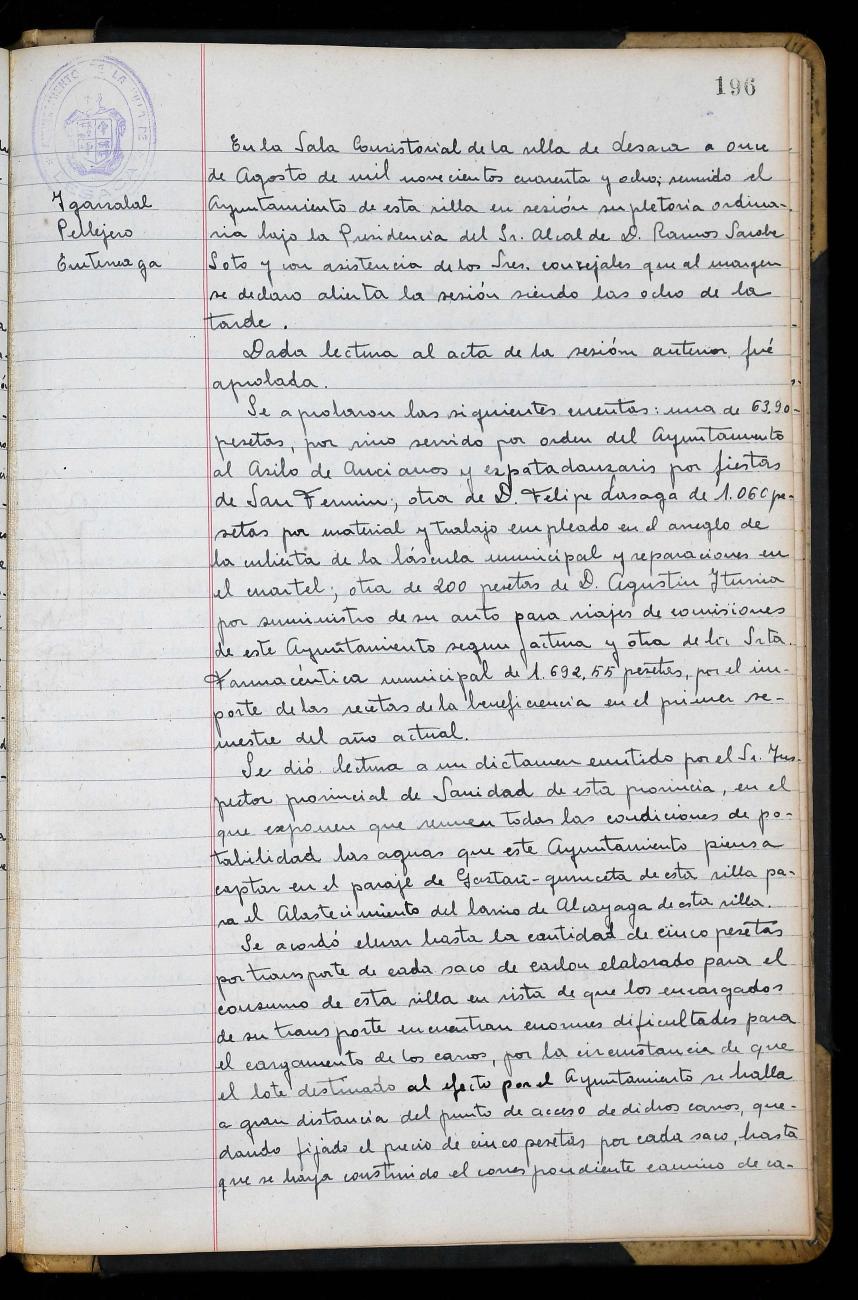 196
AYUNTAMIENTO DE LA VILLA DE
LESACA
Igarzabal
Pellejero
Entenaga
En la Sala Consistorial de la villa de Lesaca a once
de Agosto de mil novecientos cuarenta y ocho; reunido el
Ayuntamiento de esta villa en sesión supletoria ordina-
ria bajo la Presidencia del Sr. Alcalde D. Ramos Sarobe
Soto y con asistencia de los Sres. concejales que al margen
se declaro abierta la sesión siendo las ocho de la
tarde.
Dada lectura al acta de la sesión anterior, fué
aprobada.
Se aprobaron las siguientes cuentas: una de 63,90-
pesetas, por vino servido por orden del Ayuntamiento
al Asilo de Ancianos y ezpatadanzaris por fiestas
de San Fermin; otra de D. Felipe Lasaga de 1.060 pe-
setas por material y trabajo empleado en el arreglo de
la cubierta de la báscula municipal y reparaciones en
el cuartel; otra de 200 pesetas de D. Agustin Yturria
por suministro de su auto para viajes de comisiones
de este Ayuntamiento segun factura y otra de la Srta.
Farmacéutica municipal de 1.692,55 pesetas, por el im-
porte de las recetas de la beneficiencia en el primer se-
mestre del año actual.
Se dió lectura a un dictamen emitido por el Sr. Ins-
pector provincial de Sanidad de esta provincia, en el
que exponen que reunen todas las condiciones de po-
tabilidad las aguas que este Ayuntamiento piensa
captar en el paraje de de esta villa pa-
ra el Abastecimiento del barrio de Alcayaga de esta villa.
Se acordó elevar hasta la cantidad de cinco pesetas
por transporte de cada saco de carbon elaborado para el
consumo de esta villa en vista de que los encargados
de su transporte encuentran enormes dificultades para
el cargamento de los carros, por la circunstancia de que
el lote destinado al efecto por el Ayuntamiento se halla
a gran distancia del punto de acceso de dichos carros, que-
dando fijado el precio de cinco pesetas por cada saco, hasta
que se haya construido el correspondiente camino de ca-